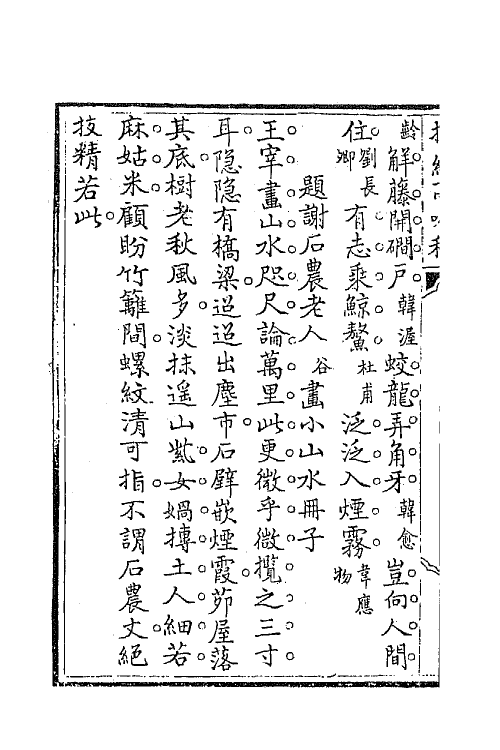 齡解藤開磵戶韓渥蛟龍弄角牙韓愈豈向人間
住劉長卿有志乘鯨鰲杜甫泛泛入煙霧韋應物
題謝石農老人谷畫小山水冊子
王宰畫山水咫尺論萬里此更微乎微攬之三寸
耳隐隐有橋梁迢迢出塵市石壁嵌煙霞茆屋落
其底樹老秋風多淡抹遥山紫女媧摶土人細若
麻姑米顧盼竹籬間螺紋清可指不謂石農丈絕
技精若此